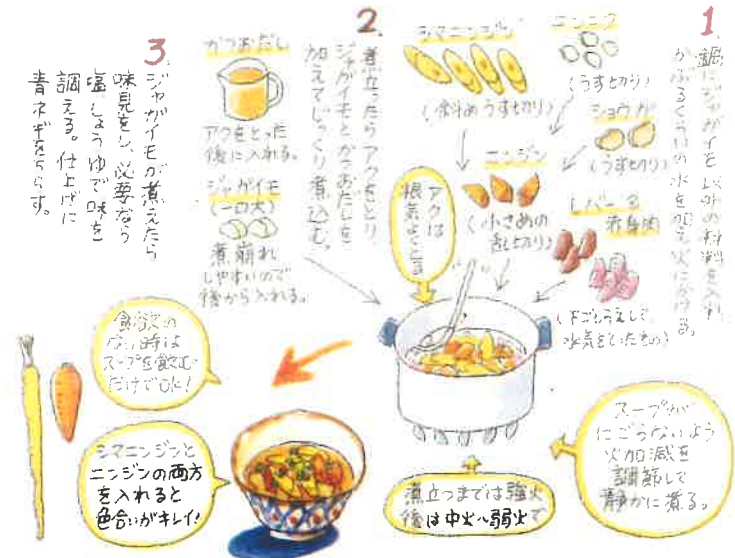 1.
鍋にジャガイモ以外の材料を入れ、
かぶるくらいの水を加え火にかける。
ニンニク
(うす切り)
ショウガ
(うす切り)
レバー&
赤身肉
(下ごしらえして、
水気をとったもの)
シマニンジン
(斜めうす切り)
ニンジン
(小さめの
乱切り)
アクは
根気よくとる
2.
煮立ったらアクをとり、
ジャガイモとかつおだしを
加えてじっくり煮込む。
かつおだし
アクをとった
後に入れる。
ジャガイモ
(一口大)
煮崩れ
しやすいので
後から入れる。
3.
ジャガイモが煮えたら
味見をし、必要なら
塩、しょうゆで味を
調える。仕上げに
青ネギをちらす。
食欲の
ない時は
スープを飲む
だけでOK!
シマニンジンと
ニンジンの両方
を入れると
色合いがキレイ!
煮立つまでは強火
後は中火〜弱火で
スープが
にごらないよう
火加減を
調節して
静かに煮る。